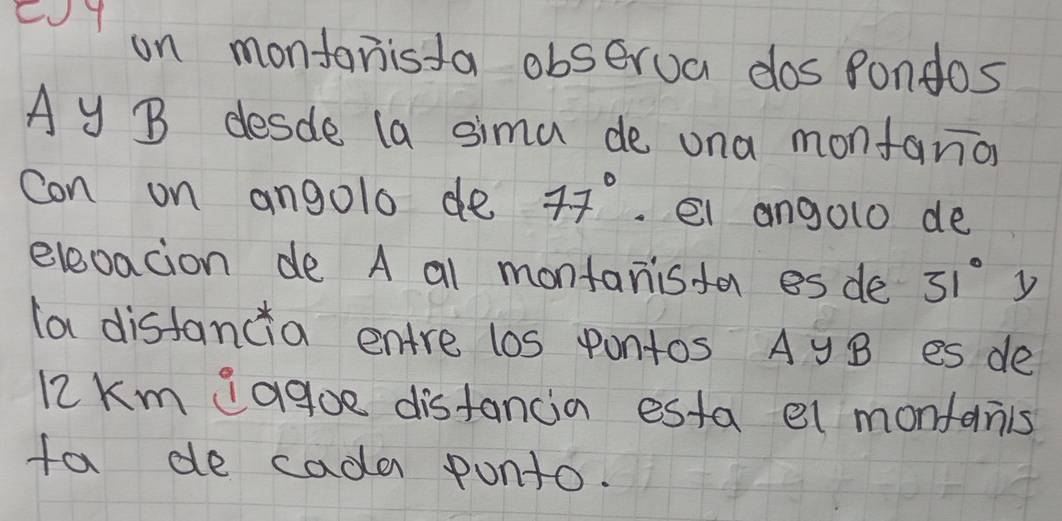 EJ4
un montañista observa dos pontos
A y B desde la sima de una montaña
Con un angolo de 77°. el angolo de
elevacion de A al montañista es de 31° y
la distancia entre los puntos A y B es de
12 Km ¿aque distancia esta el montañis
ta de cada punto.